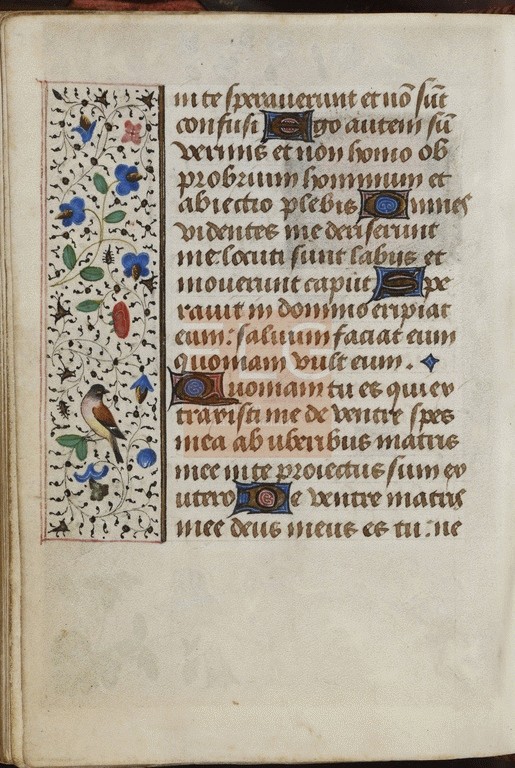 in te sperauerunt et nō sūt
confusi Ego autem sū
vermis et non homo ob
probrium hominum et
abiectio plebis Omnes
videntes me deriserunt
me locuti sunt labijs et
mouerunt caput Spe
rauit in domino eripiat
eum: saluum faciat eum
quoniam vult eum.
Quoniam tu es qui ex
traxisti me de ventre spes
mea ab uberibus matris
mee in te proiectus sum ex
utero De ventre matris
mee deus meus es tu: ne